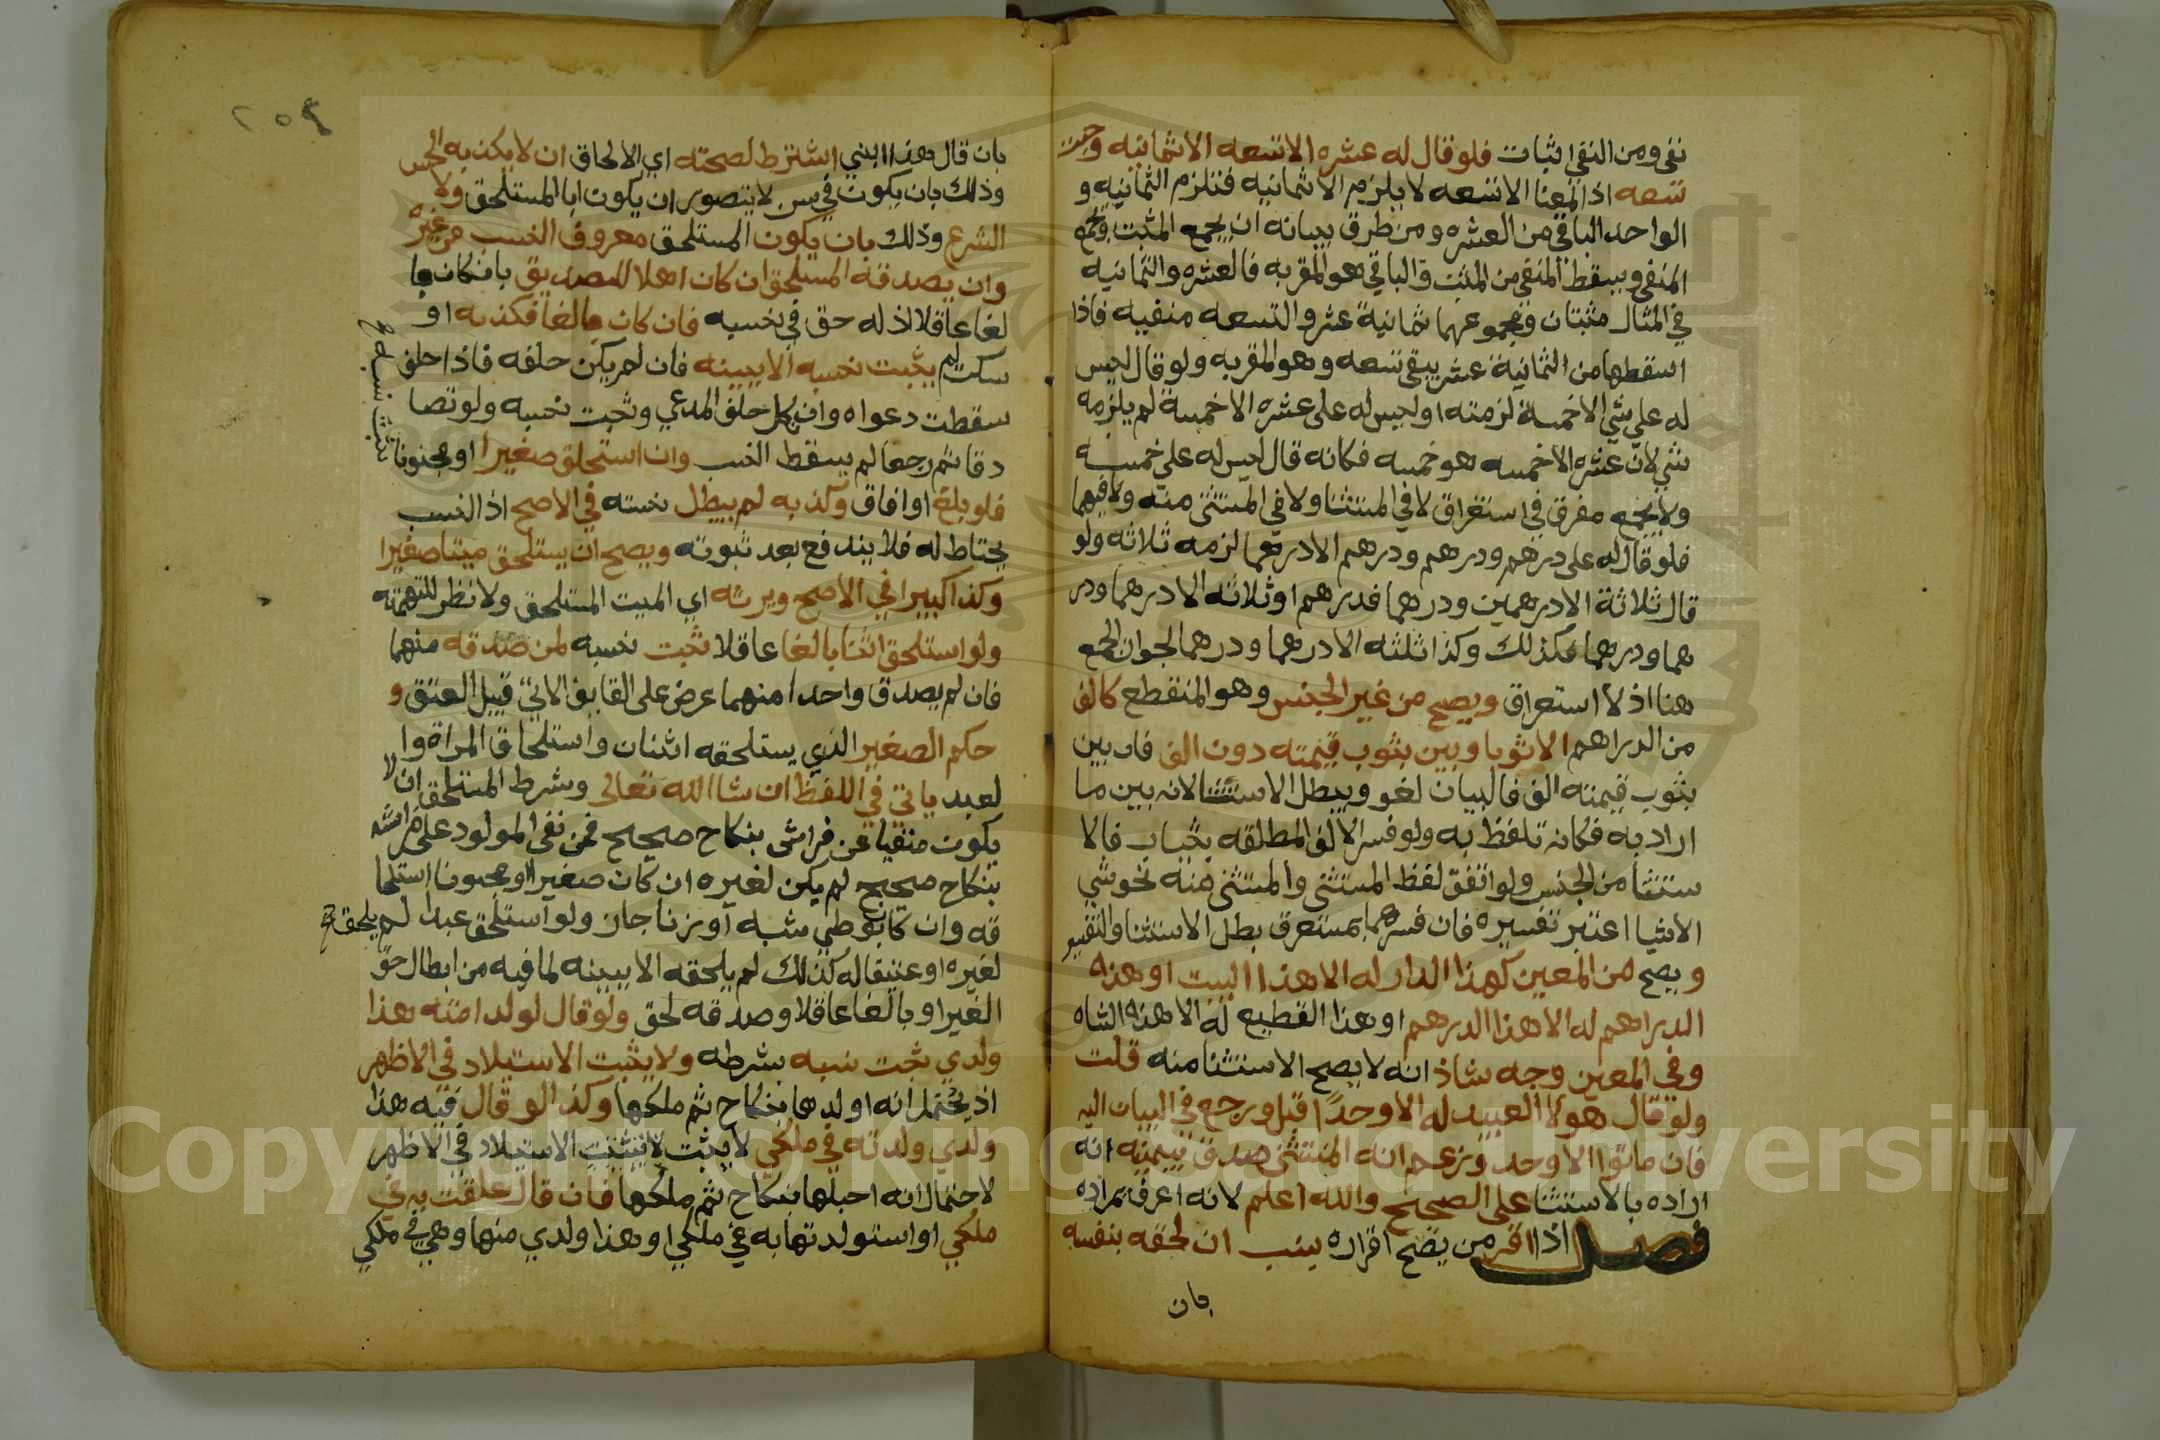 نفي ومن النفي اثبات فلو قال له عشره الا تسعه الا ثمانيه وجبت
تسعه اذ المعنا الا تسعه لا يلزم الا ثمانيه فتلزم الثمانيه و
الواحد الباقي من العشره ومن طرق بيانه ان يجمع المثبت ويجمع
المنفي ويسقط المنفي من المثبت والباقي هو المقر به فالعشره والثمانيه
في المثال مثبتان ومجموعهما ثمانية عشر والتسعه منفيه فاذا
اسقطها من الثمانية عشر يبقى تسعه وهو المقر به ولو قال ليس
له علي شي الا خمسة لزمته او ليس له على عشره الا خمسة لم يلزمه
شي لان عشره الا خمسه هو خمسه فكانه قال ليس له علي خمسه
ولا يجمع مفرق في استغراق لا في المستثنا ولا في المستثنى منه ولا فيهما
فلو قال له على درهم ودرهم ودرهم الا درهما لزمه ثلاثه ولو
قال ثلاثة الا درهمين ودرهما فدرهم او ثلاثه الا درهما ودر
هما ودرهما فكذلك وكذا ثلثه الا درهما ودرهما لجواز الجمع
هنا اذ لا استعراق ويصح من غير الجنس وهو المنقطع كالف
من الدراهم الا ثوبا وبين بثوب قيمته دون الف فان بين
بثوب قيمته الف فالبيان لغو ويبطل الاستثنا لانه بين ما
اراد به فكانه تلفظ به ولو فسر الالف المطلقه بثياب فالا
ستثنا من الجنس ولو اتفق لفظ المستثنى والمستثنى منه نحو شي
الا شيا اعتبر تفسيره فان فسرهما بمستعرق بطل الاستثنا والتفسير
ويصح من المعين كهذا الدار له الا هذا البيت او هذه
الدراهم له الا هذا الدرهم او هذا القطيع له الا هذه الشاه
وفي المعين وجه شاذ انه لا يصح الاستثنا منه قلت
ولو قال هولا العبيد له الا وحدًا قبل ورجع في البيان اليه
فان ماتوا الا وحد وزعم انه المستثنى صدق بيمينه انه
اراده بالاستثنا على الصحيح والله اعلم لانه اعرف بمراده
فصل اذا اقر من يصح اقراره بنسب ان لحقه بنفسه
بان
٢٥٩
بان قال هذا ابني اشترط لصحته اي الالحاق ان لا يكذبه الحس
وذلك بان يكون في سن لا يتصور ان يكون ابا المستلحق ولا
الشرع وذلك بان يكون المستلحق معروف النسب من غيره
وان يصدقه المستلحق ان كان اهلا للتصديق بان كان با
لغا عاقلا اذ له حق في نسبه فان كان بالغا فكذبه او
سكت لم يثبت نسبه الا ببينه فان لم يكن حلفه فاذا حلف
سقطت دعواه وان نكل حلف المدعي وثبت نسبه ولو تصا
دقا ثم رجعا لم يسقط النسب وان استحلق صغيرا او مجنونا
فلو بلغ او افاق وكذبه لم يبطل نسبه في الاصح اذ النسب
يحتاط له فلا يندفع بعد ثبوته ويصح ان يستلحق ميتا صغيرا
وكذا كبيرا في الاصح ويرثه اي الميت المستلحق ولا نظر للتهمته
ولو استلحق اثنا بالغا عاقلا ثبت نسبه لمن صدقه منهما
فان لم يصدق واحدا منهما عرض على القايف الاتي قبيل العتق و
حكم الصغير الذي يستلحقه اثنان واستلحاق المراة وا
لعبد ياتي في اللفظ ان شا الله تعالى وشرط المستلحق ان لا
يكون منفيا عن فراش بنكاح صحيح فمن نفى المولود على فراشه
بنكاح صحيح لم يكن لغيره ان كان صغيرا او مجنونا استلحا
قه وان كان بوطي شبه او زنا جاز ولو استلحق عبدا لم يلحقه
لغيره او عتيقا له كذلك لم يلحقه الا ببينه لما فيه من ابطال حق
الغير او بالغا عاقلا وصدقه لحق ولو قال لولد امته هذا
ولدي ثبت نسبه بشرطه ولا يثبت الاستيلاد في الاظهر
اذ يحتمل انه اولدها بنكاح ثم ملكها وكذا لو قال فيه هذا
ولدي ولدته في ملكي لا يثبت الاستيلاد في الاظهر
لاحتمال انه احبلها بنكاح ثم ملكها فان قال علقت به في
ملكي او استولدتها به في ملكي او هذا ولدي منها وهي في ملكي
Copyright © King Saud University